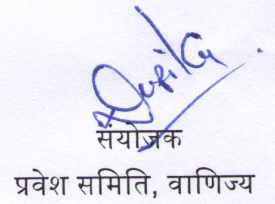 संयोजक
प्रवेश समिति, वाणिज्य